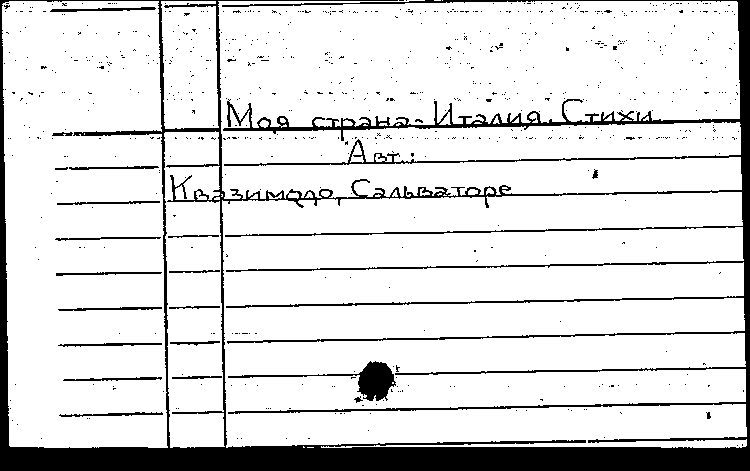 Моя страна - Италия. Стихи
Авт.:
Квазимодо, Сальваторе